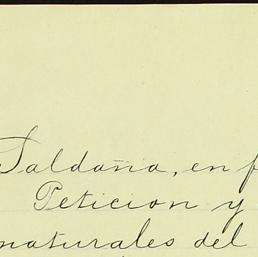 Saldaña, en f
Peticion y
naturales del